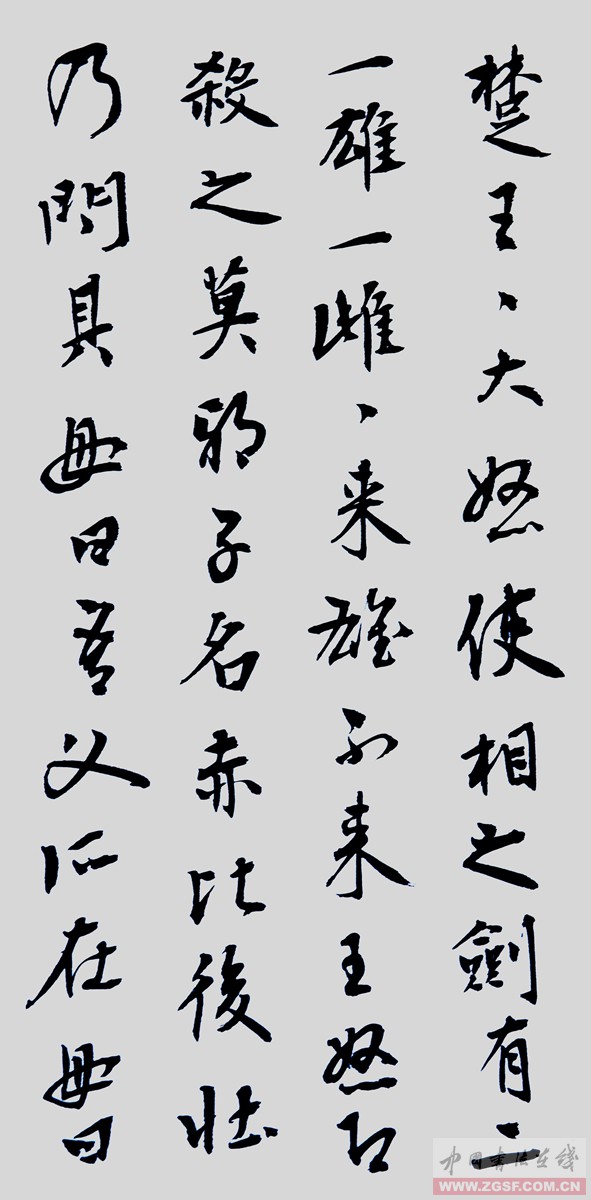 楚王、大怒使相之劍有二
一雄一雌、来雄不来王怒即
殺之莫邪子名赤比後壯
乃問其母曰吾父所在母曰
中国书法在线
WWW.ZGSF.COM.CN